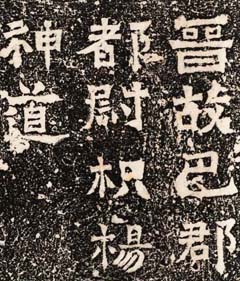 晉故巴郡
都尉枳楊
神道